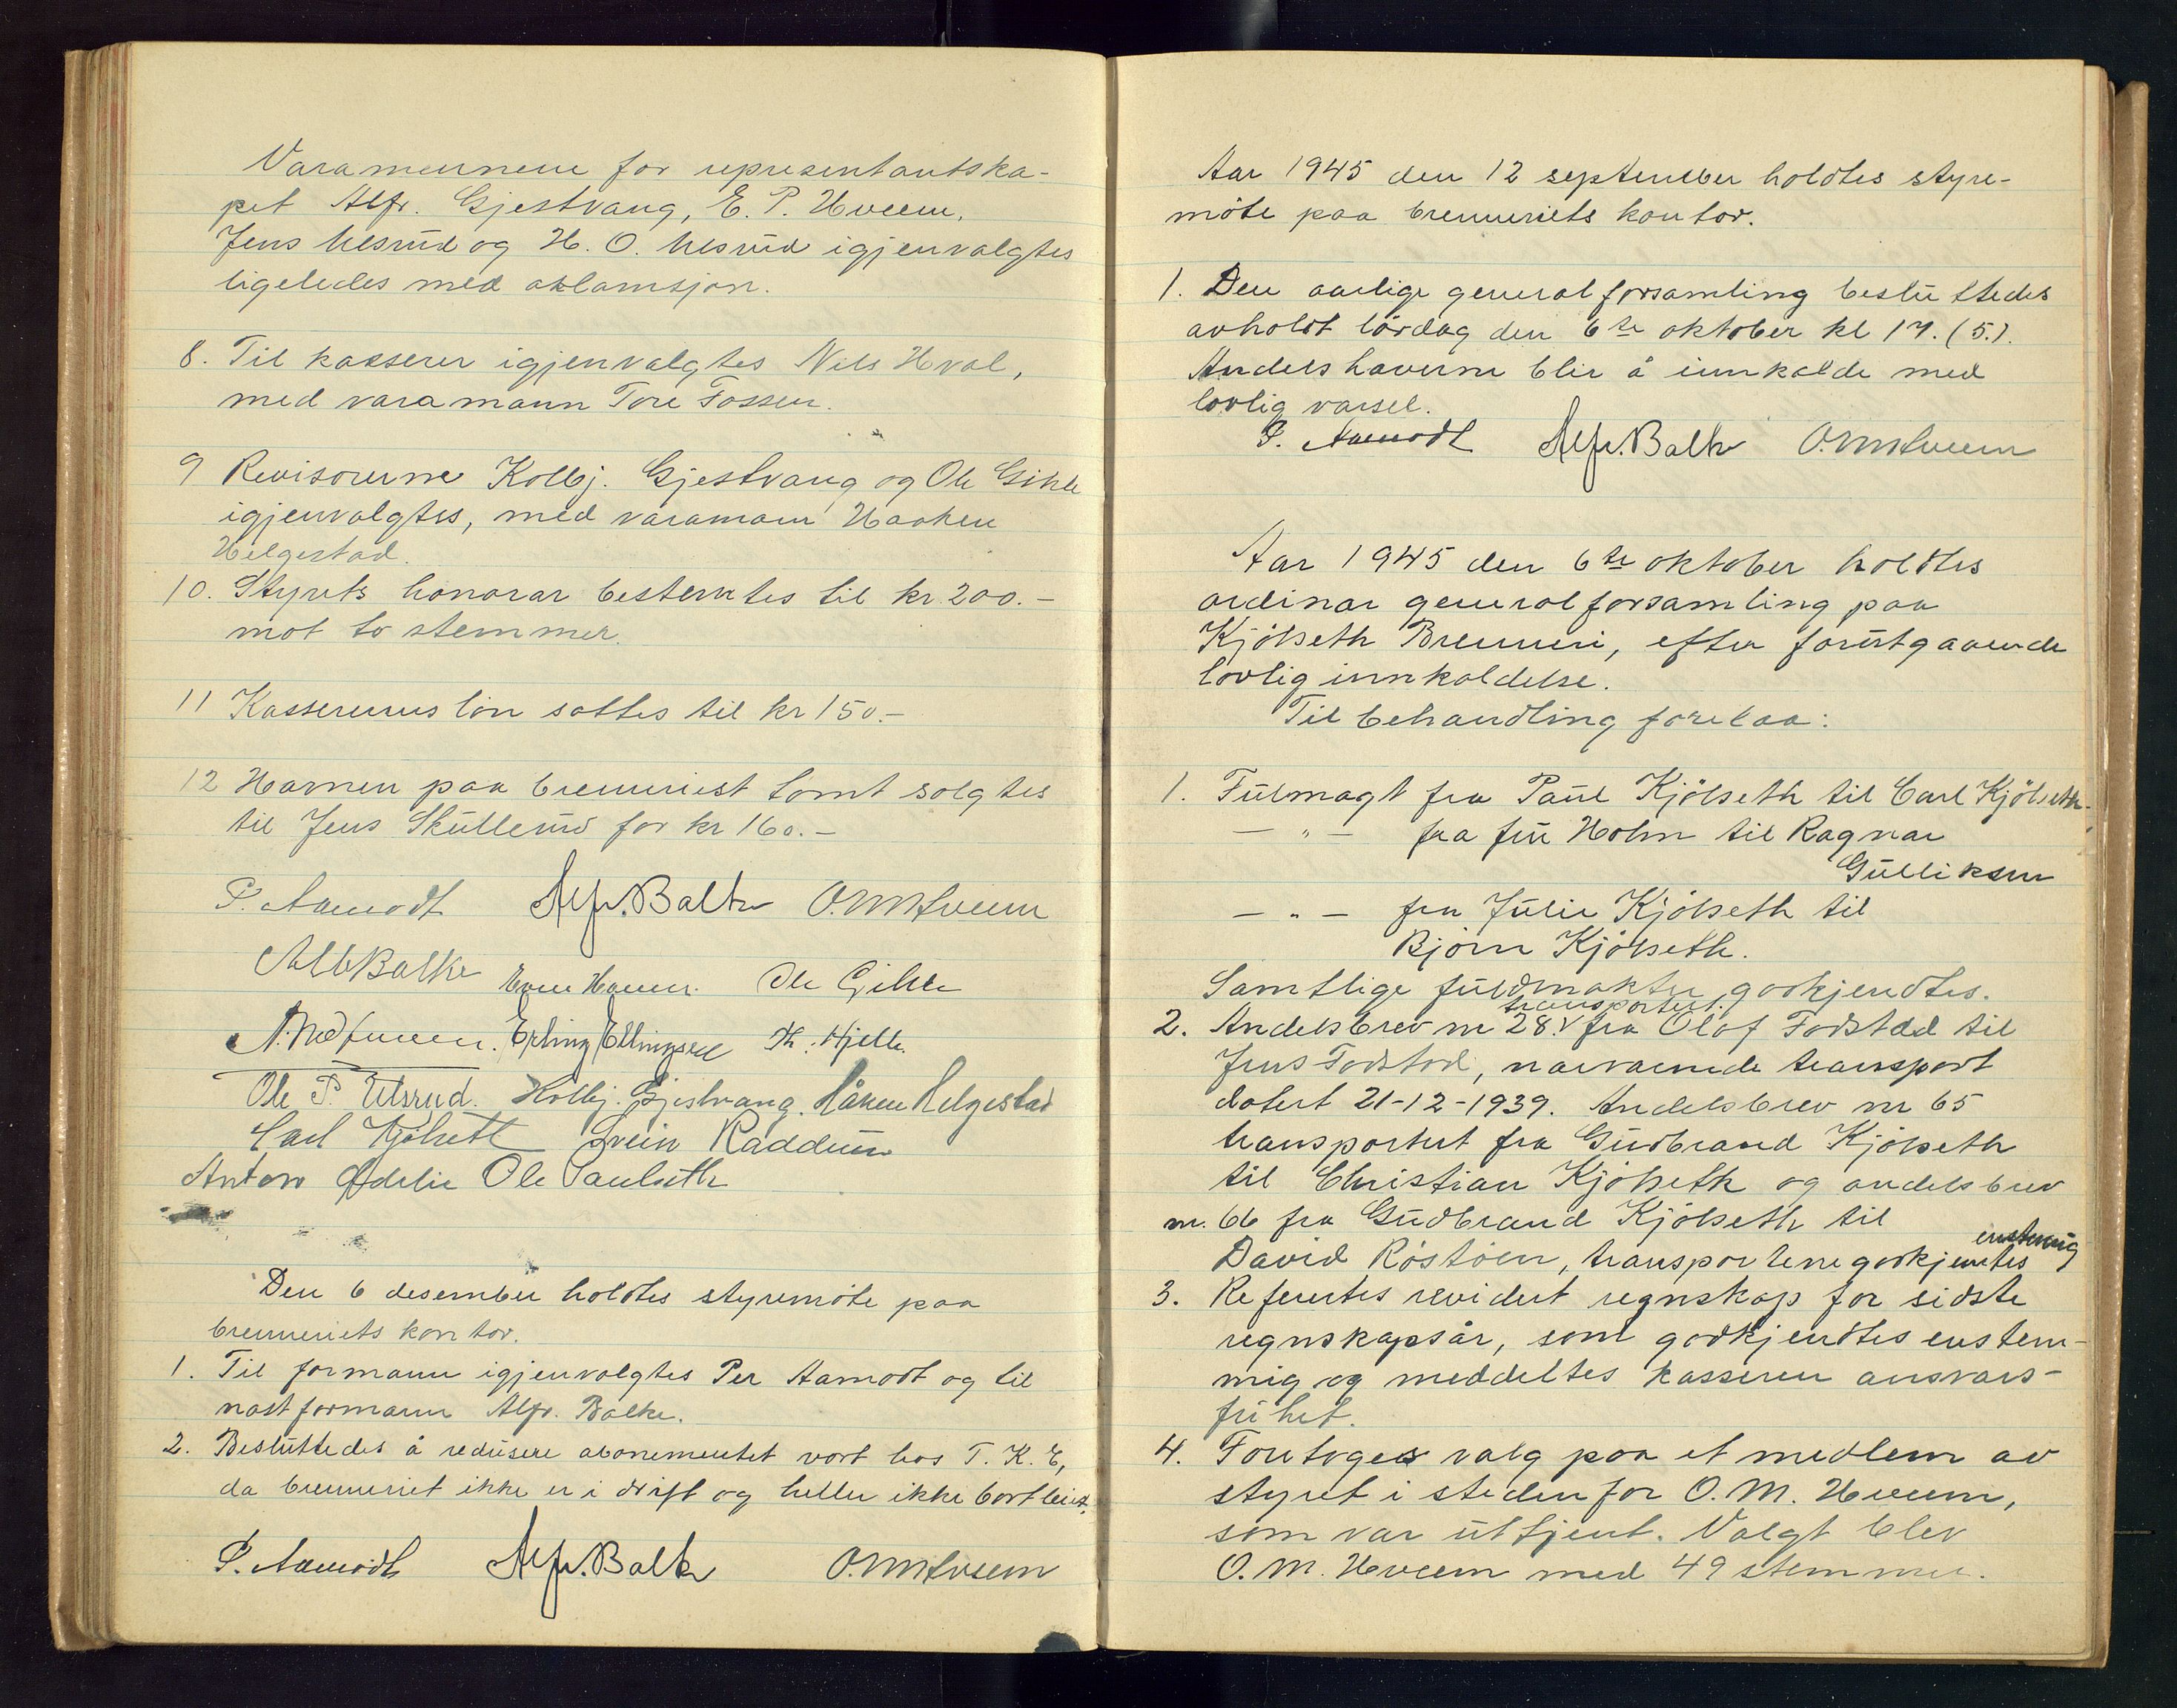 Varamennene for representantska-
pet Alfr. Gjestvang, E. P. Hveem,
Jens Ulsrud og H. O. Ulsrud igjenvalgtes
ligeledes med aklamsjon.
8. Til kasserer igjenvalgtes Nils Hval,
med varamann Tore Fossen.
9 Revisorerne Kolbj. Gjestvang og Ole Gihle
igjenvalgtes, med varamann Haaken
Helgestad.
10. Styrets honorar bestemtes til kr. 200.-
mot to stemmer.
11 Kassererens lön sattes til kr 150.-
12 Hamen paa brenneriest tomt solgtes
til Jens Skullerud for kr 160.-
P. Aamodt Alfr. Balke O. M. Hveem
Alb Balke Even Hveem. Ole Gihle
Erling Ellingsen Th. Hjelle.
Ole P. Ulsrud. Kolbj. Gjestvang. Håken Helgestad
Carl Kjölseth Svein Raddum
Anton Ødelie Ole Paulseth
Den 6 desember holdtes styremöte paa
brenneriets kontor.
1. Til formann igjenvalgtes Per Aamodt og til
nästformann Alfr. Balke.
2. Besluttedes å redusere abonementet vort hos T. K. E,
da brenneriet ikke er i drift og heller ikke bortleiet.
P. Aamodt Alfr. Balke O. M. Hveem
Aar 1945 den 12 september holdtes styre-
möte paa brenneriets kontor.
1. Den aarlige generalforsamling besluttedes
avholdt lördag den 6te oktober kl 17. (5.).
Andelshaverne blir å innkalde med
lovlig varsel.
P. Aamodt Alfr. Balke O. M. Hveem
Aar 1945 den 6te oktober holdtes
ordinær generalforsamling paa
Kjölseth Brenneri, efter forutgaaende
lovlig innkaldelse.
Til behandling forelaa:
1. Fulmagt fra Paul Kjölseth til Carl Kjölseth.
— " — fra fru Holm til Ragnar
Gulliksen
— " — fra Julie Kjölseth til
Björn Kjölseth.
Samtlige fuldmakter godkjendtes.
transportert
2. Andelsbrev nr 28 v fra Olaf Fodstad til
Jens Fodstad, nærværende transport
datert 21-12-1939. Andelsbrev nr 65
transportert fra Gudbrand Kjölseth
til Christian Kjölseth og andelsbrev
nr. 66 fra Gudbrand Kjölseth til
enstemig
David Röstöen, transportene godkjentes
3. Refertes revidert regnskap for sidste
regnskapsår, som godkjendtes enstem-
mig og meddeltes kasseren ansvars-
frihet.
4. Foretoges valg paa et medlem av
styret i steden for O. M. Hveem,
som var uttjent. Valgt blev
O. M. Hveem med 49 stemmer.